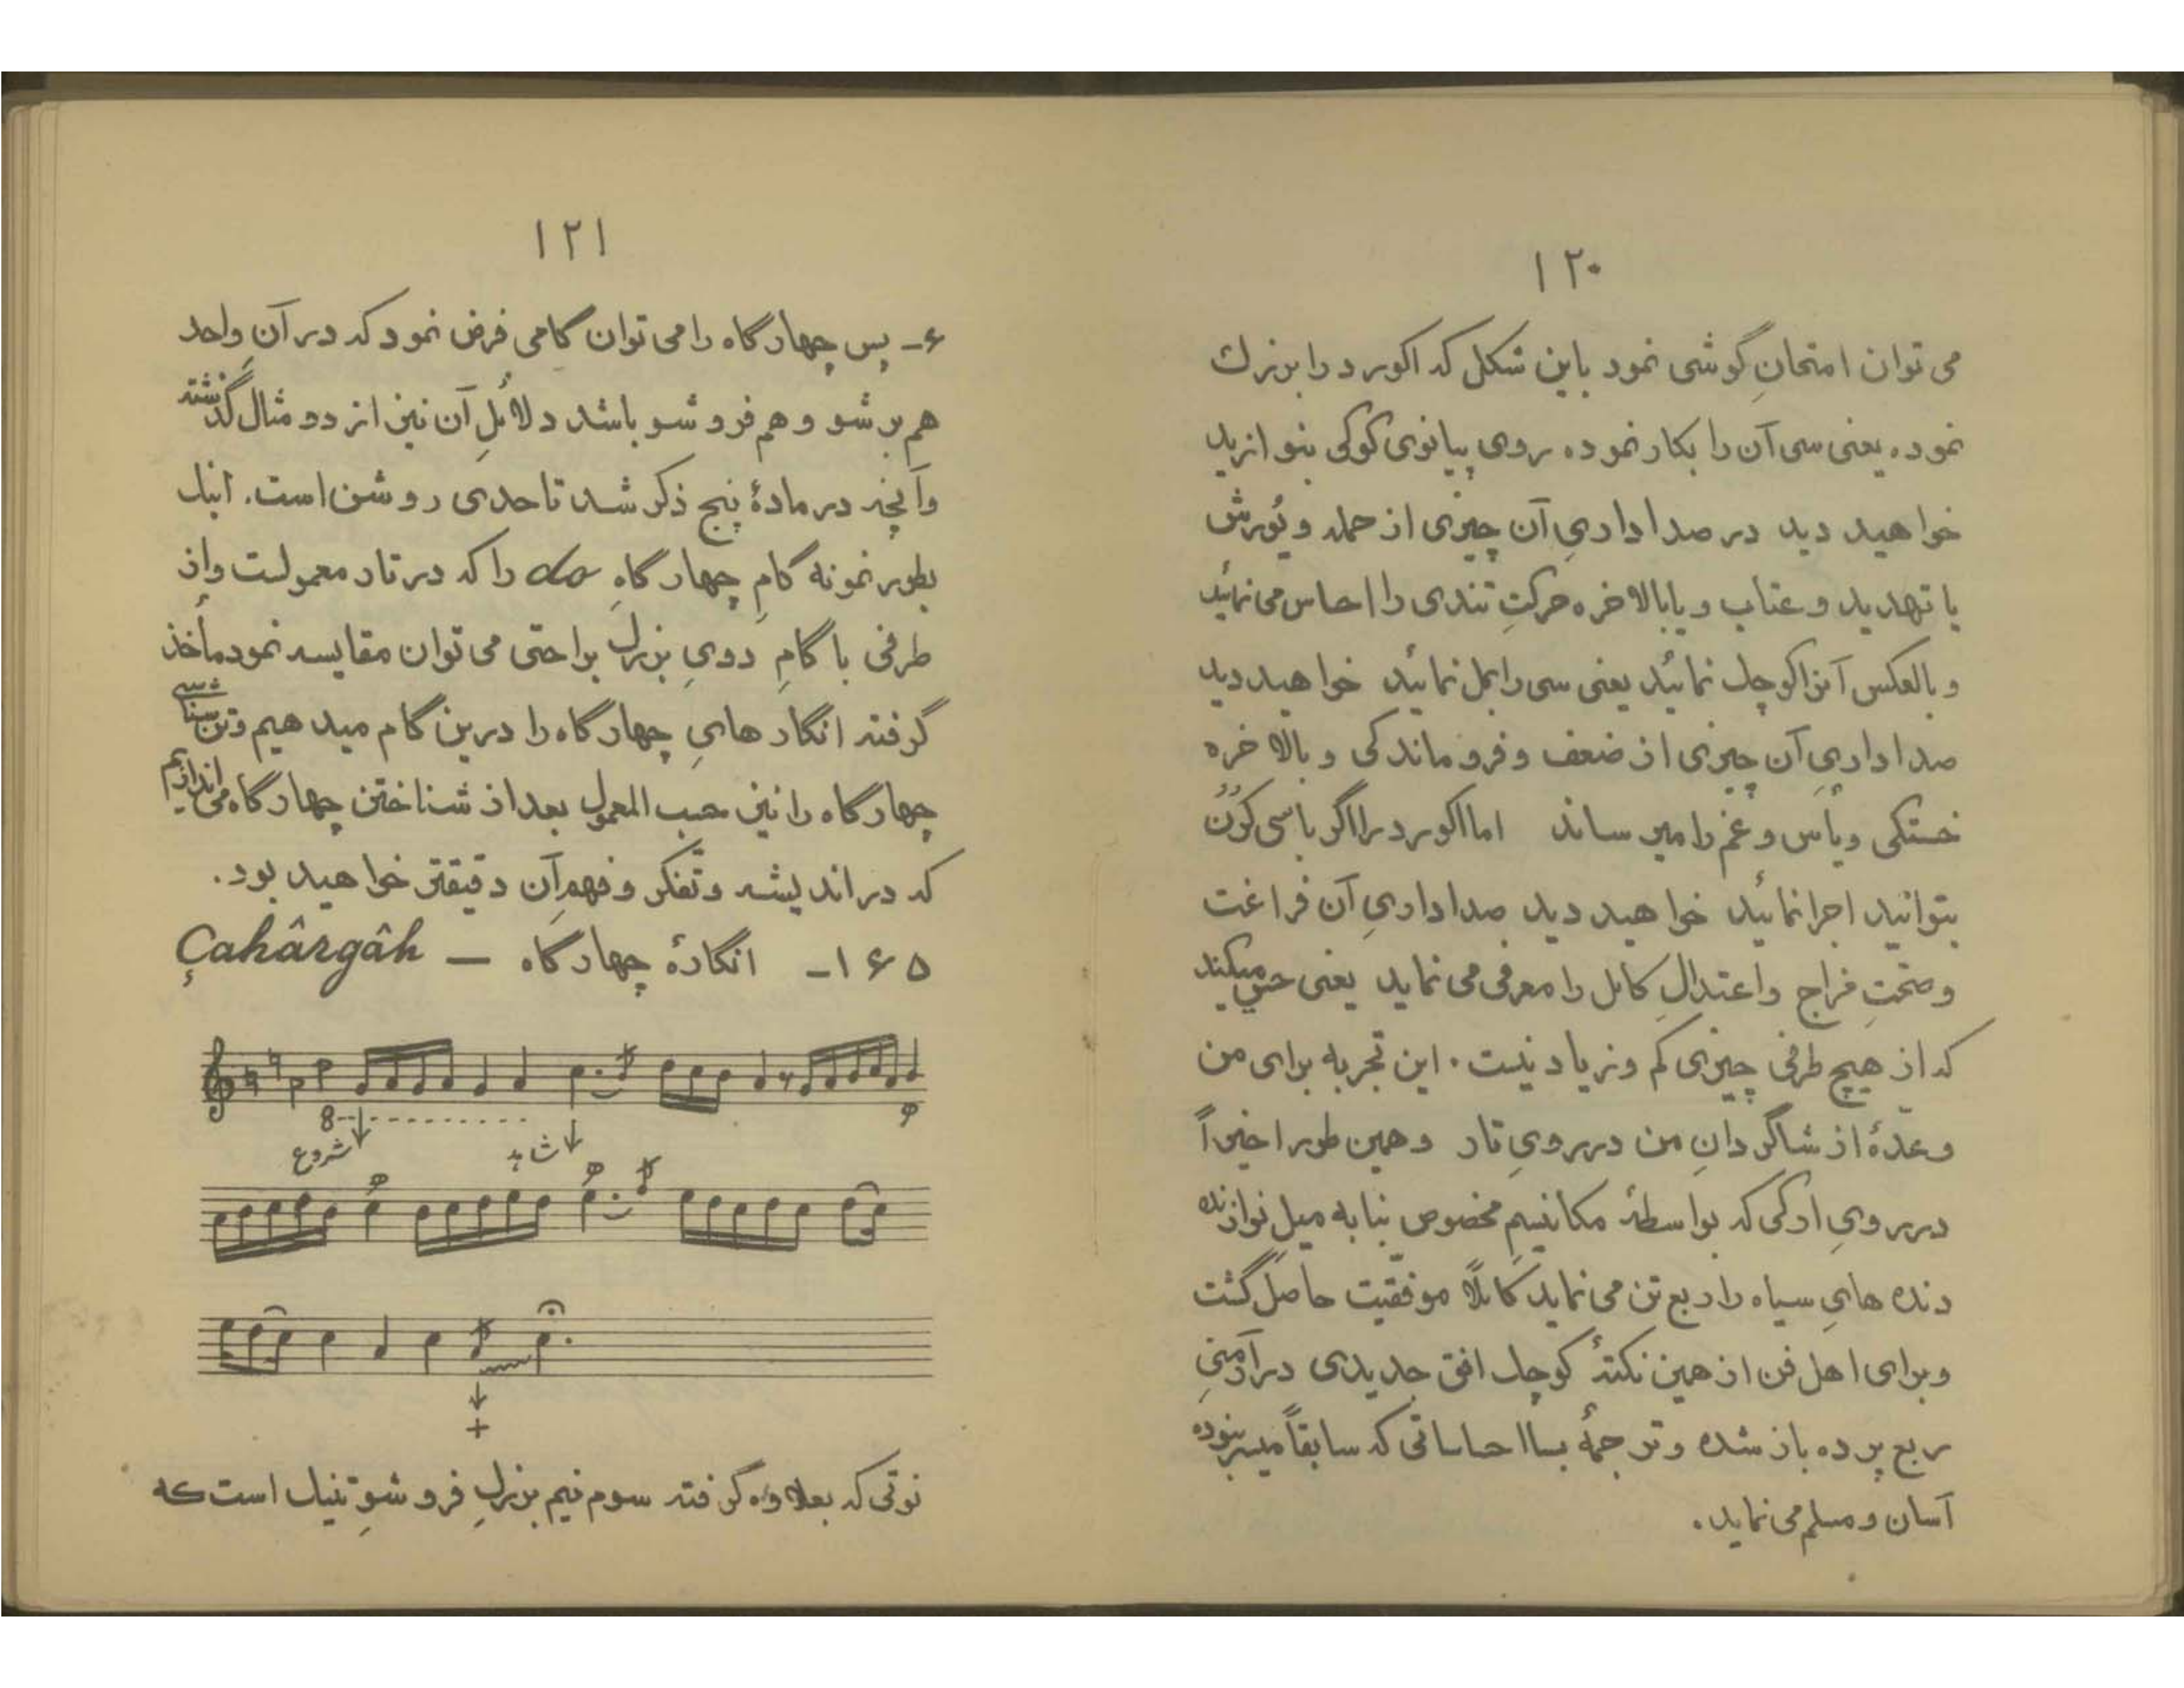 ۱۲۰
می توان امتحانِ گوشی نمود باین شکل که اکورد را بزرك
نموده یعنی سی آن را بکار نموده روی پیانوی کوکی بنوازید
خواهید دید در صداداریِ آن چیزی از حمله و یُورش
یا تهدید و عتاب و یا بالاخره حرکتِ تندی را احساس می نمائید
و بالعکس آنرا کوچك نمائید یعنی سی را بمل نمائید خواهید دید
صداداریِ آن چیزی از ضعف و فروماندگی و بالاخره
خستگی و یأس و غم را میرساند اما اکورد را اگر با سی کرُن
بتوانید اجرا نمائید خواهید دید صداداریِ آن فراغت
و صحّتِ مزاج و اعتدالِ کامل را معرفی می نماید یعنی حس میکنید
که از هیچ طرفی چیزی کم و زیاد نیست. این تجربه برای من
و عدّهٔ از شاگردانِ من در رویِ تار و همین طور اخیراً
در رویِ ارگی که بواسطهٔ مکانیسمِ مخصوص بنا به میل نوازنده
دنده هایِ سیاه را ربع تن می نماید کاملاً موفقیت حاصل گشت
و برای اهل فن از همین نکتهٔ کوچك افق جدیدی در آرمنیِ
ربع پرده باز شده و ترجمهٔ بسا احساساتی که سابقاً میسر نبوده
آسان و مسلم می نماید.
۱۲۱
۶- پس چهارگاه را می توان گامی فرض نمود که در آنِ واحد
هم برشو و هم فروشو باشد دلائلِ آن نیز از دو مثال گذشته
و آنچه در مادهٔ پنج ذکر شد تا حدی روشن است. اینك
بطور نمونه گامِ چهارگاهِ do را که در تار معمولست و از
طرفی با گامِ دویِ بزرك براحتی می توان مقایسه نمود مأخذ
گرفته انگارهایِ چهارگاه را درین گام میدهیم و تن شناسی
چهارگاه را نیز حسب المعمول بعد از شناختن چهارگاه می اندازیم
که در اندیشه و تفکر و فهمِ آن دقیقتر خواهید بود.
۱۶۵- انگارهٔ چهارگاه — Çahârgâh
8-
شروع
شاهد
نوتی که بعلاوه گرفته سوم نیم بزركِ فروشوِ تنیك است که